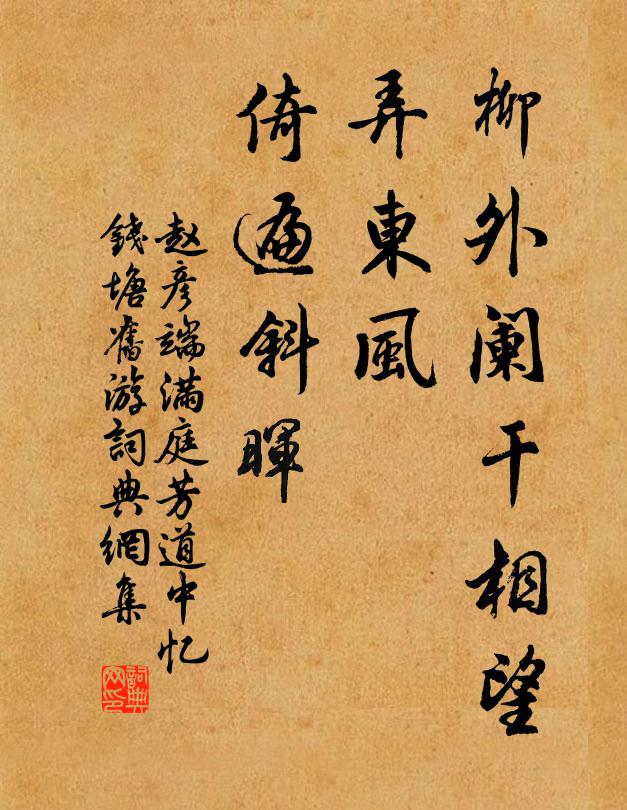 柳外阑干相望
弄東風
倚遍斜暉
赵彦端满庭芳道中忆
錢塘舊游詞典網集
詞典网印